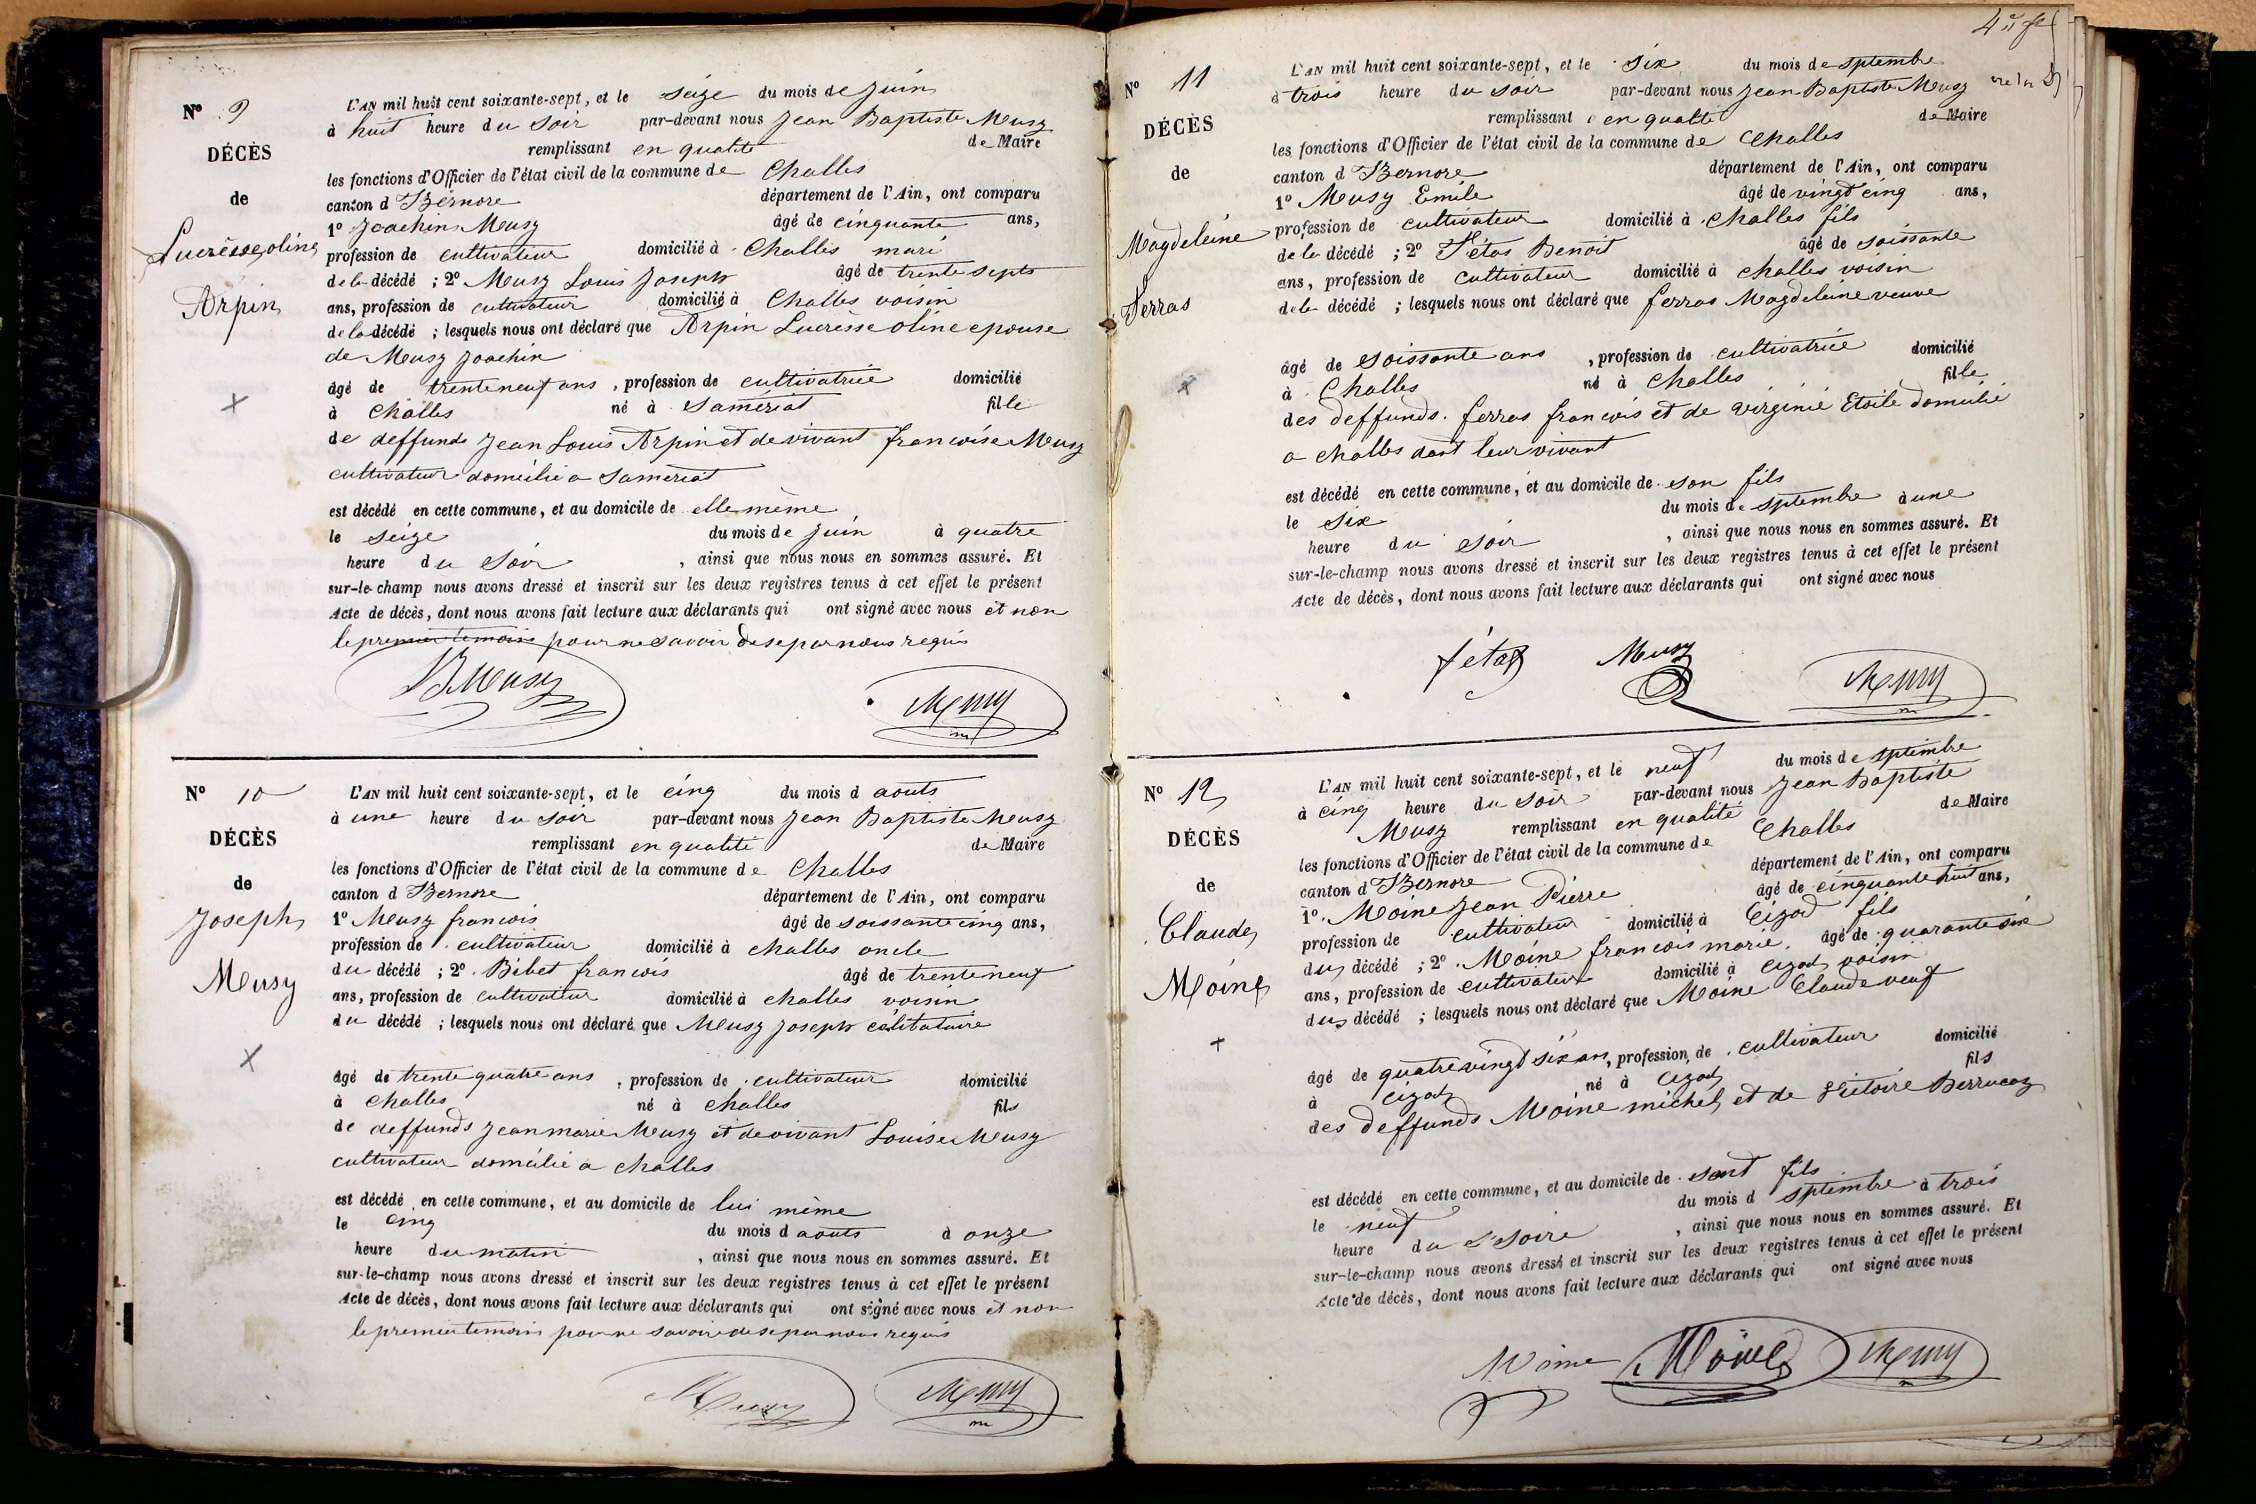 Nº 9
DÉCÈS
de
Lucrèsse oline
Arpin
L'AN mil huit cent soixante-sept, et le seize du mois de juin
à huit heure du soir par-devant nous Jean Baptiste Meusy
remplissant en qualité de Maire
les fonctions d'Officier de l'état civil de la commune de Challes
canton d Bernore département de l'Ain, ont comparu
1º Joachin Meusy âgé de cinquante ans,
profession de cultivateur domicilié à Challes mari
de la décédé ; 2º Meusy Louis Joseph âgé de trente septs
ans, profession de cultivateur domicilié à Challes voisin
de la décédé ; lesquels nous ont déclaré que Arpin Lucrèsse oline epouse
de Meusy Joachin
âgé de trente neuf ans , profession de cultivatrice domicilié
à Challes né à Samériat fille
de deffunds Jean Louis Arpin et de vivant francoise Meusy
cultivateur domicilié a Samériat
est décédé en cette commune, et au domicile de elle même
le seize du mois de juin à quatre
heure du Soir , ainsi que nous nous en sommes assuré. Et
sur-le-champ nous avons dressé et inscrit sur les deux registres tenus à cet effet le présent
Acte de décès, dont nous avons fait lecture aux déclarants qui ont signé avec nous et non
le premier temoin pour ne savoir de se par nous requis
Meusy
Meusy
Nº 10
DÉCÈS
de
Joseph
Meusy
L'AN mil huit cent soixante-sept, et le cinq du mois d aouts
à une heure du soir par-devant nous Jean Baptiste Meusy
remplissant en qualité de Maire
les fonctions d'Officier de l'état civil de la commune de Challes
canton d Bernore département de l'Ain, ont comparu
1º Meusy francois âgé de soissante cinq ans,
profession de cultivateur domicilié à challes oncle
du décédé ; 2º Bibet francois âgé de trente neuf
ans, profession de cultivateur domicilié à challes voisin
du décédé ; lesquels nous ont déclaré que Meusy Joseph célitataire
âgé de trente quatre ans , profession de cultivateur domicilié
à challes né à challes fils
de deffunds Jean marie Meusy et de vivant Louise Meusy
cultivateur domicilié a challes
est décédé en cette commune, et au domicile de lui même
le cinq du mois d aouts à onze
heure du matin , ainsi que nous nous en sommes assuré. Et
sur-le-champ nous avons dressé et inscrit sur les deux registres tenus à cet effet le présent
Acte de décès, dont nous avons fait lecture aux déclarants qui ont signé avec nous et non
le premier temoin pour ne savoire de se par nous requis
Meusy
Meusy
Nº 11
DÉCÈS
de
Magdeleine
Ferras
L'AN mil huit cent soixante-sept, et le six du mois de sptembre
à trois heure du soir par-devant nous Jean-Baptiste Meusy
remplissant en qualité de Maire
les fonctions d'Officier de l'état civil de la commune de Challes
canton d Bernore département de l'Ain, ont comparu
1º Meusy Emile âgé de vingt cinq ans,
profession de cultivateur domicilié à Challes fils
de la décédé ; 2º Fétas Benoit âgé de soissante
ans, profession de cultivateur domicilié à challes voisin
de la décédé ; lesquels nous ont déclaré que ferras Magdeleine veuve
âgé de soissante ans , profession de cultivatrice domicilié
à Challes né à Challes fille
des deffunds ferras francois et de virginie Etoile domicilié
a challes dant leur vivant
est décédé en cette commune, et au domicile de son fils
le six du mois de sptembre à une
heure du soir , ainsi que nous nous en sommes assuré. Et
sur-le-champ nous avons dressé et inscrit sur les deux registres tenus à cet effet le présent
Acte de décès, dont nous avons fait lecture aux déclarants qui ont signé avec nous
fétas Meusy Meusy
Nº 12
DÉCÈS
de
Claude
Moine
L'AN mil huit cent soixante-sept, et le neuf du mois de sptimbre
à cinq heure du soir par-devant nous Jean Baptiste
Meusy remplissant en qualité de Maire
les fonctions d'Officier de l'état civil de la commune de Challes
canton d Bernore département de l'Ain, ont comparu
1º Moine Jean Pierre âgé de cinquante huit ans,
profession de cultivateur domicilié à Cizod fils
du décédé ; 2º Moine francois marie âgé de quarante six
ans, profession de cultivateur domicilié à cizod voisin
du décédé ; lesquels nous ont déclaré que Moine Claude veuf
âgé de quatre vingt six ans, profession de cultivateur domicilié
à cizod né à cizod fils
des deffunds Moine michel et de Victoire Berrucoz
est décédé en cette commune, et au domicile de sont fils
le neuf du mois d sptimbre à trois
heure du Soire , ainsi que nous nous en sommes assuré. Et
sur-le-champ nous avons dressé et inscrit sur les deux registres tenus à cet effet le présent
Acte de décès, dont nous avons fait lecture aux déclarants qui ont signé avec nous
Moine Moine Meusy